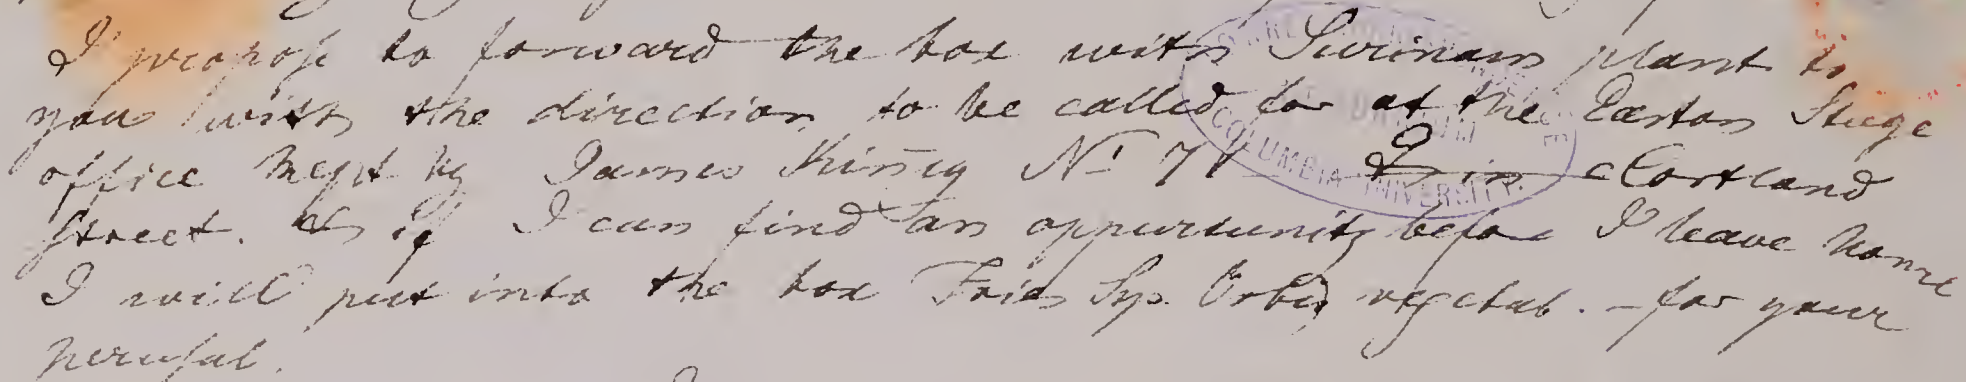 I propose to forward the box with Surinam plant to
you with the direction to be called for at the Easton Stage
office kept by James Kinsey No 71 in Cortland
Street. If I can find an oppurtunity before I leave home
I will put into the box Fries Sys. Orbis vegetab. - for your
perusal.
COLUMBIA UNIVERSITY